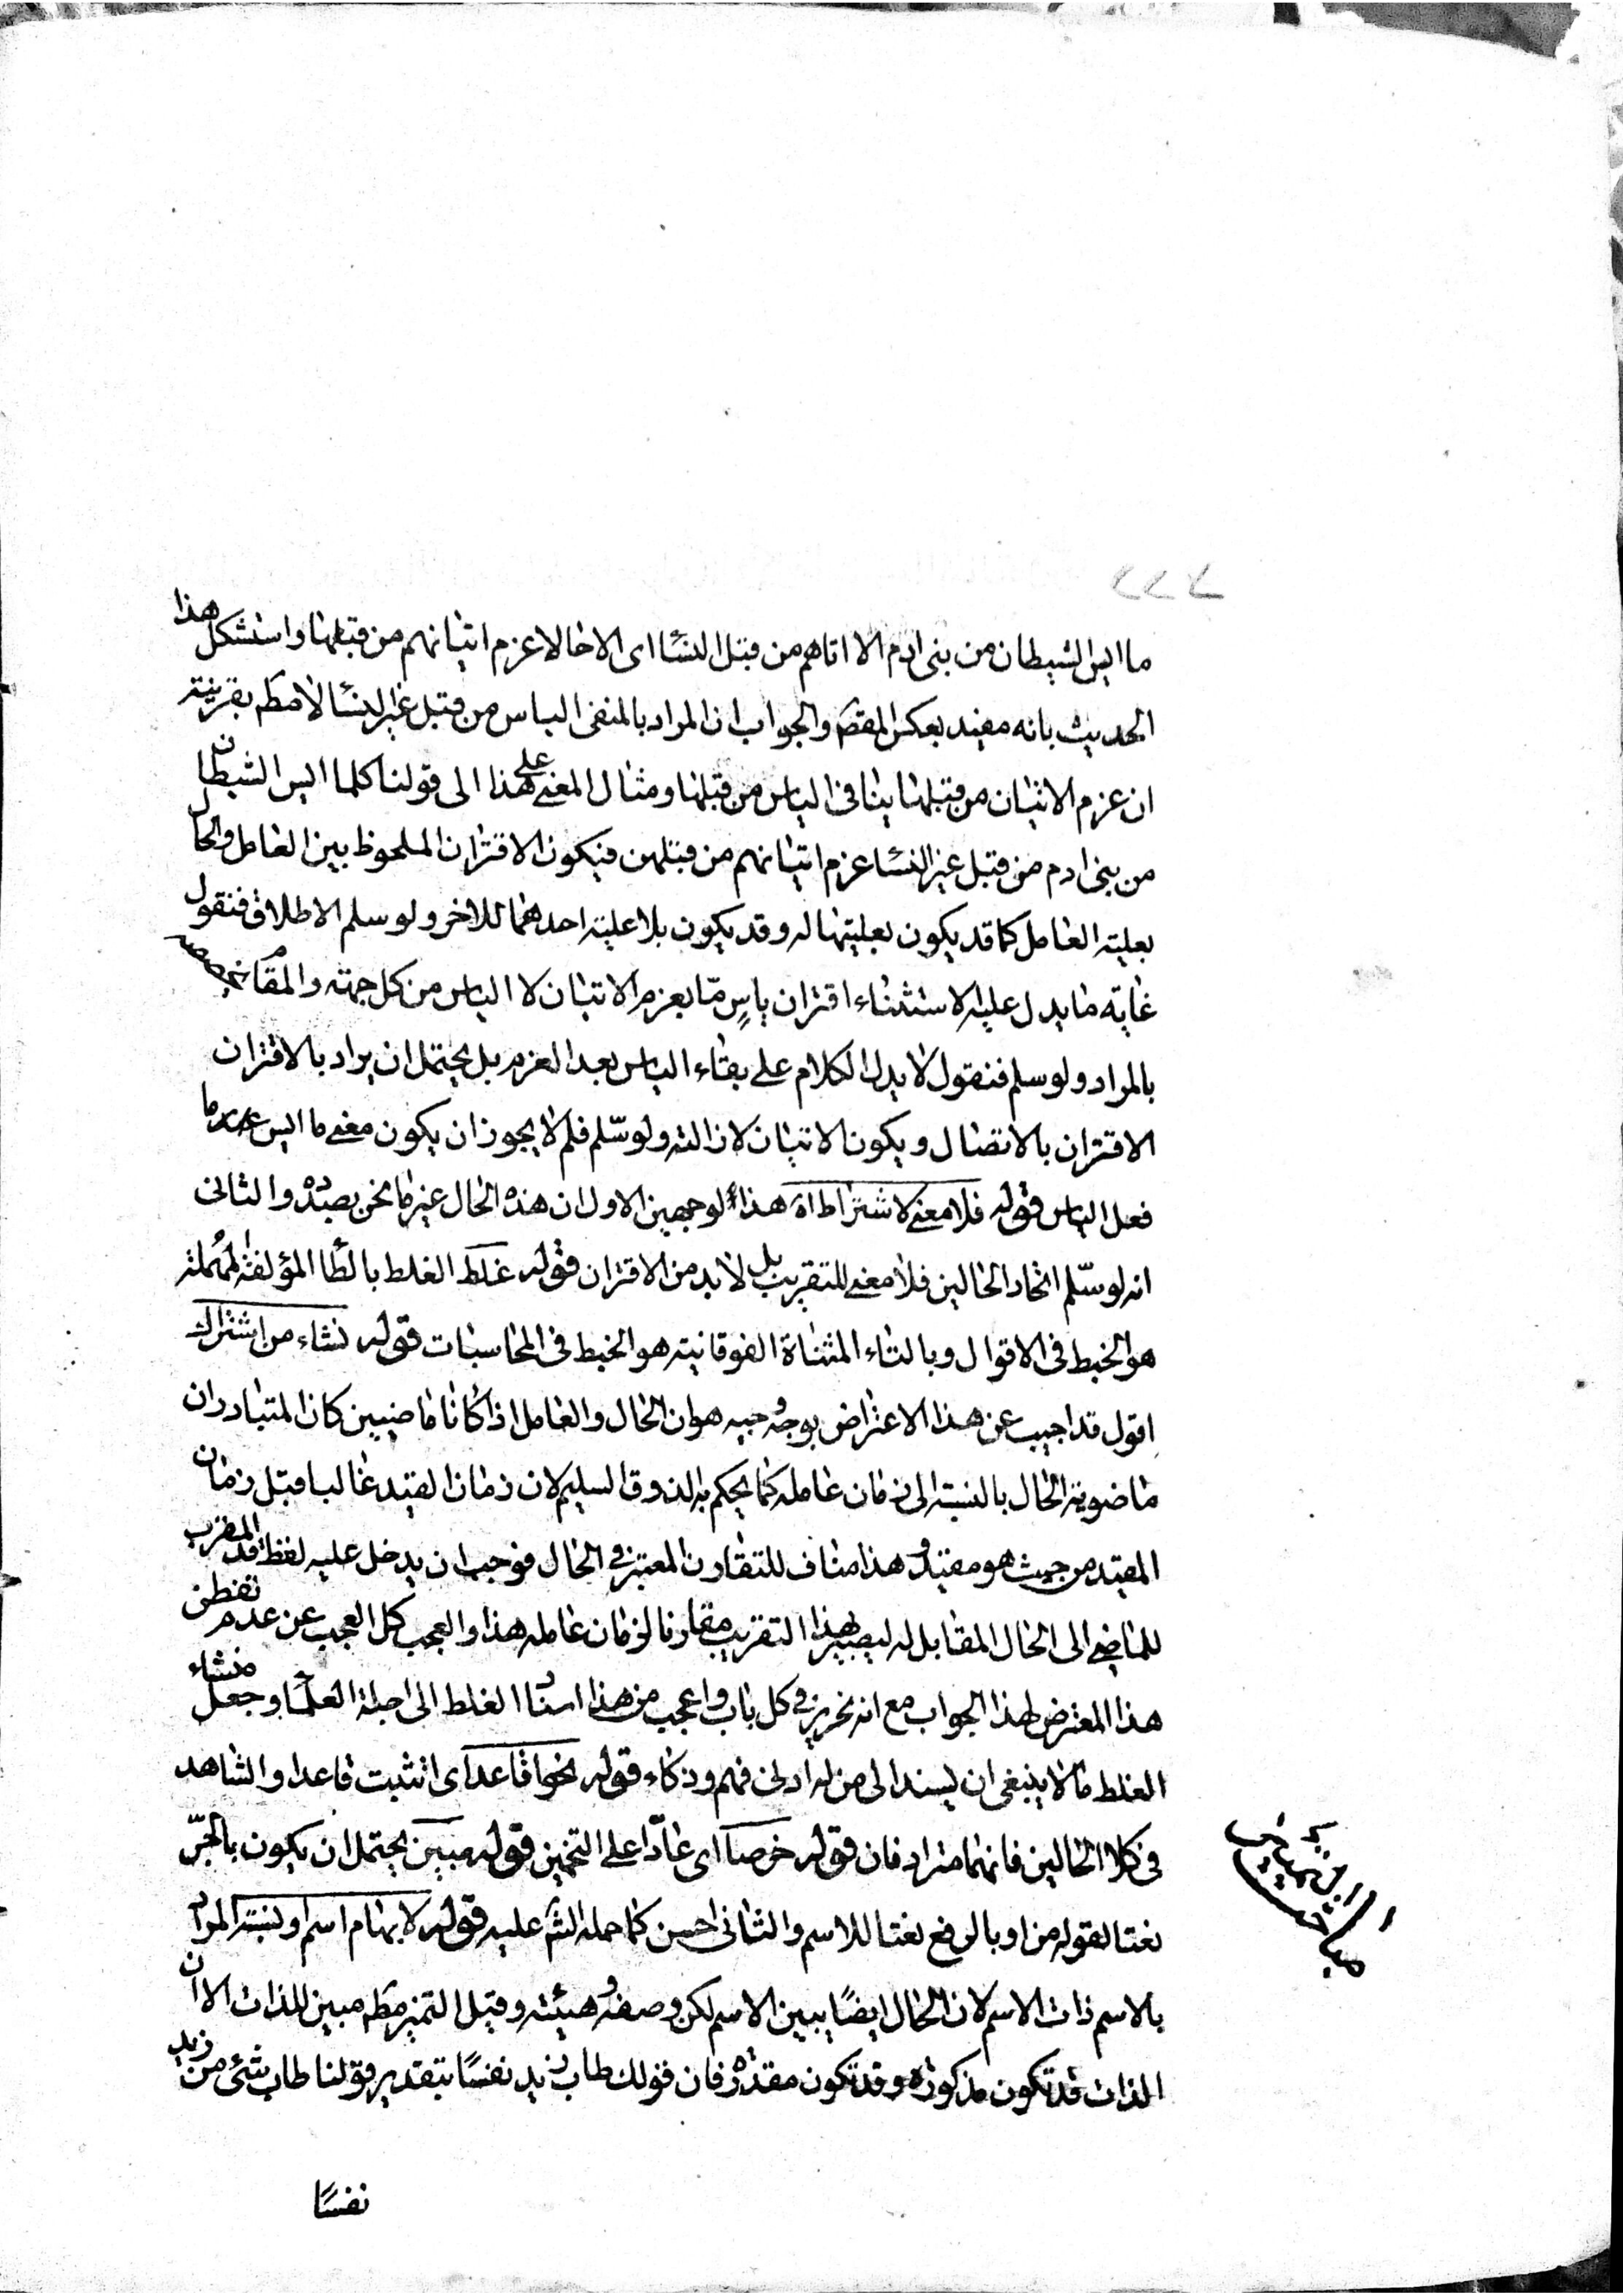 ما ايس الشيطان من بنى ادم الا اتاهم من قبل النسا اى الا حالا عزم اتيانهم من قبلها واستشكل هذا
الحديث بانه مفيد بعكس المقصم والجواب ان المراد بالمنفى الياس من قبل غير النسا لا مطم بقرينة
ان عزم الاتيان من قبلها ينافى الياس من قبلها ومثال المعنى على هذا الى قولنا كلما ايس الشيطان
من بنى ادم من قبل غير النسا عزم اتيانهم من قبلهن فيكون الاقتران الملحوظ بين العامل والحال
بعلية العامل كما قد يكون بعليتها له وقد يكون بلا علية احدهما للاخر ولو سلم الاطلاق فنقول
غاية ما يدل عليه الاستثناء اقتران ياسٍ مّا بعزم الاتيان لا الياس من كل جهة والمقام
بالمراد ولو سلم فنقول لا يدل الكلام على بقاء الياس بعد العزم بل يحتمل ان يراد بالاقتران
الاقتران بالاتصال ويكون الاتيان لازالته ولو سّلم فلم لا يجوز ان يكون معنى ما ايس
فعل الياس قوله فلا معنى لاشتراط اه هذا لوجهين الاول ان هذه الحال غير ما نحن بصدده والثانى
انه لو سّلم اتحاد الحالين فلا معنى للتقريب بل لا بد من الاقتران قوله غلط الغلط بالطا المؤلفة المهملة
هو الخبط فى الاقوال وبالتاء المثناة الفوقانية هو الخبط فى المحاسبات قوله نشاء من اشتراك
اقول قد اجيب عن هذا الاعتراض بوجه وجيه هو ان الحال والعامل اذا كانا ماضيين كان المتبادر ان
ماضوية الحال بالنسبة الى زمان عامله كما يحكم به الذوق السليم لان زمان القيد غالبا قبل زمان
المقيد من حيث هو مقيد وهذا مناف للتقارن المعتبر فى الحال فوجب ان يدخل عليه لفظة قد المقرب
للماضى الى الحال المقابل له ليصير بهذا التقريب مقارنا لزمان عامله هذا والعجب كل العجب عن عدم تفطن
هذا المعترض لهذا الجواب مع انه نحرير فى كل باب واعجب من هذا اسناد الغلط الى اجلة العلما وجعل منشاء
الغلط ما لا ينبغى ان يسند الى من له ادنى فهم وذكاء قوله نحو قاعدا اى اتثبت قاعدا والشاهد
فى كلا الحالين فانهما مترادفان قوله خرصا اى عادّا على التخمين قوله مبين يحتمل ان يكون بالجرّ
نعتا لقوله من او بالرفع نعتا للاسم والثانى احسن كما حمله الشم عليه قوله لابهام اسم او نسبة المراد
بالاسم ذات الاسم لان الحال ايضًا يبين الاسم لكن وصفه وهيئته وقيل التميز مطم مبين للذات الا ان
الذات قد تكون مذكورة وقد تكون مقدرة فان قولك طاب زيد نفسًا بتقدير قولنا طاب شئ من زيد
نفسًا
مباحث التمييز